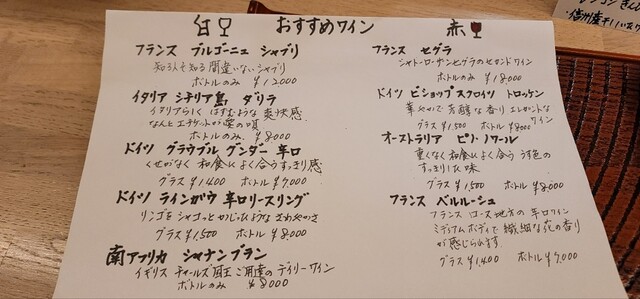 おすすめワイン
白
フランス ブルゴーニュ シャブリ
知る人も知る間違いないシャブリ
ボトルのみ ¥12000
イタリア シチリア島 ダリラ
イタリアらしく はずむような 爽快感
なんとエチケットが愛の唄
ボトルのみ ¥8000
ドイツ グラウブルグンダー 辛口
くせがなく 和食によく合うすっきり感
グラス ¥1400 ボトル ¥7,000
ドイツ ラインガウ 辛口リースリング
リンゴをシャゴっとかじったような さわやかさ
グラス ¥1,500 ボトル ¥8,000
南アフリカ シャナンブラン
イギリス チャールズ国王ご用達の デイリーワイン
ボトルのみ ¥8000
赤
フランス セグラ
シャトーローザンセグラのセカンドワイン
ボトルのみ ¥18000
ドイツ ビショップスクロイツ トロッケン
華やかで 芳醇な香り エレガントなワイン
グラス ¥1,500 ボトル ¥8000
オーストラリア ピノ・ノワール
重くなく和食によく合う
すっきりした味
グラス ¥1,500 ボトル ¥8,000
フランス ベルルーシュ
フランス ローヌ地方の 辛口ワイン
ミディアムボディで 繊細な花の香り
が感じられます
グラス ¥1,400 ボトル ¥7,000